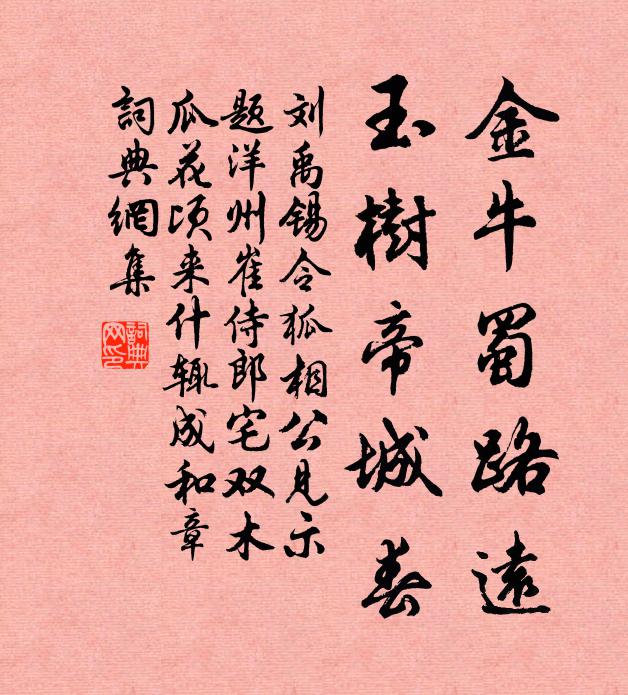 金牛蜀路遠
玉樹帝城春
刘禹锡令狐相公見示
题洋州崔侍郎宅双木
瓜花顷来什辄成和章
詞典網集
詞典网印